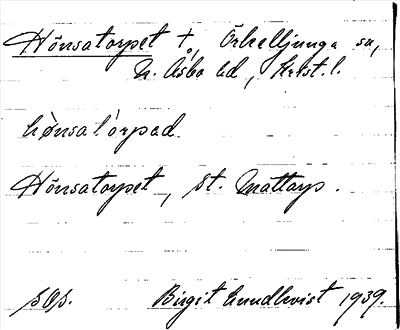 Hönsatorpet †, Örkelljunga sn,
N. Åsbo hd, Krist. l.
hönsatorpad
Hönsatorpet, st. Mattarp.
sOs. Birgit Lundkvist 1939.